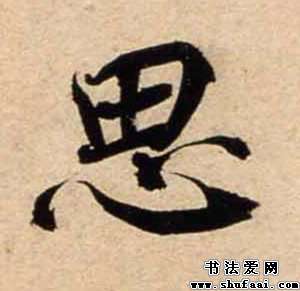 思
书法爱网
www.shufaai.com